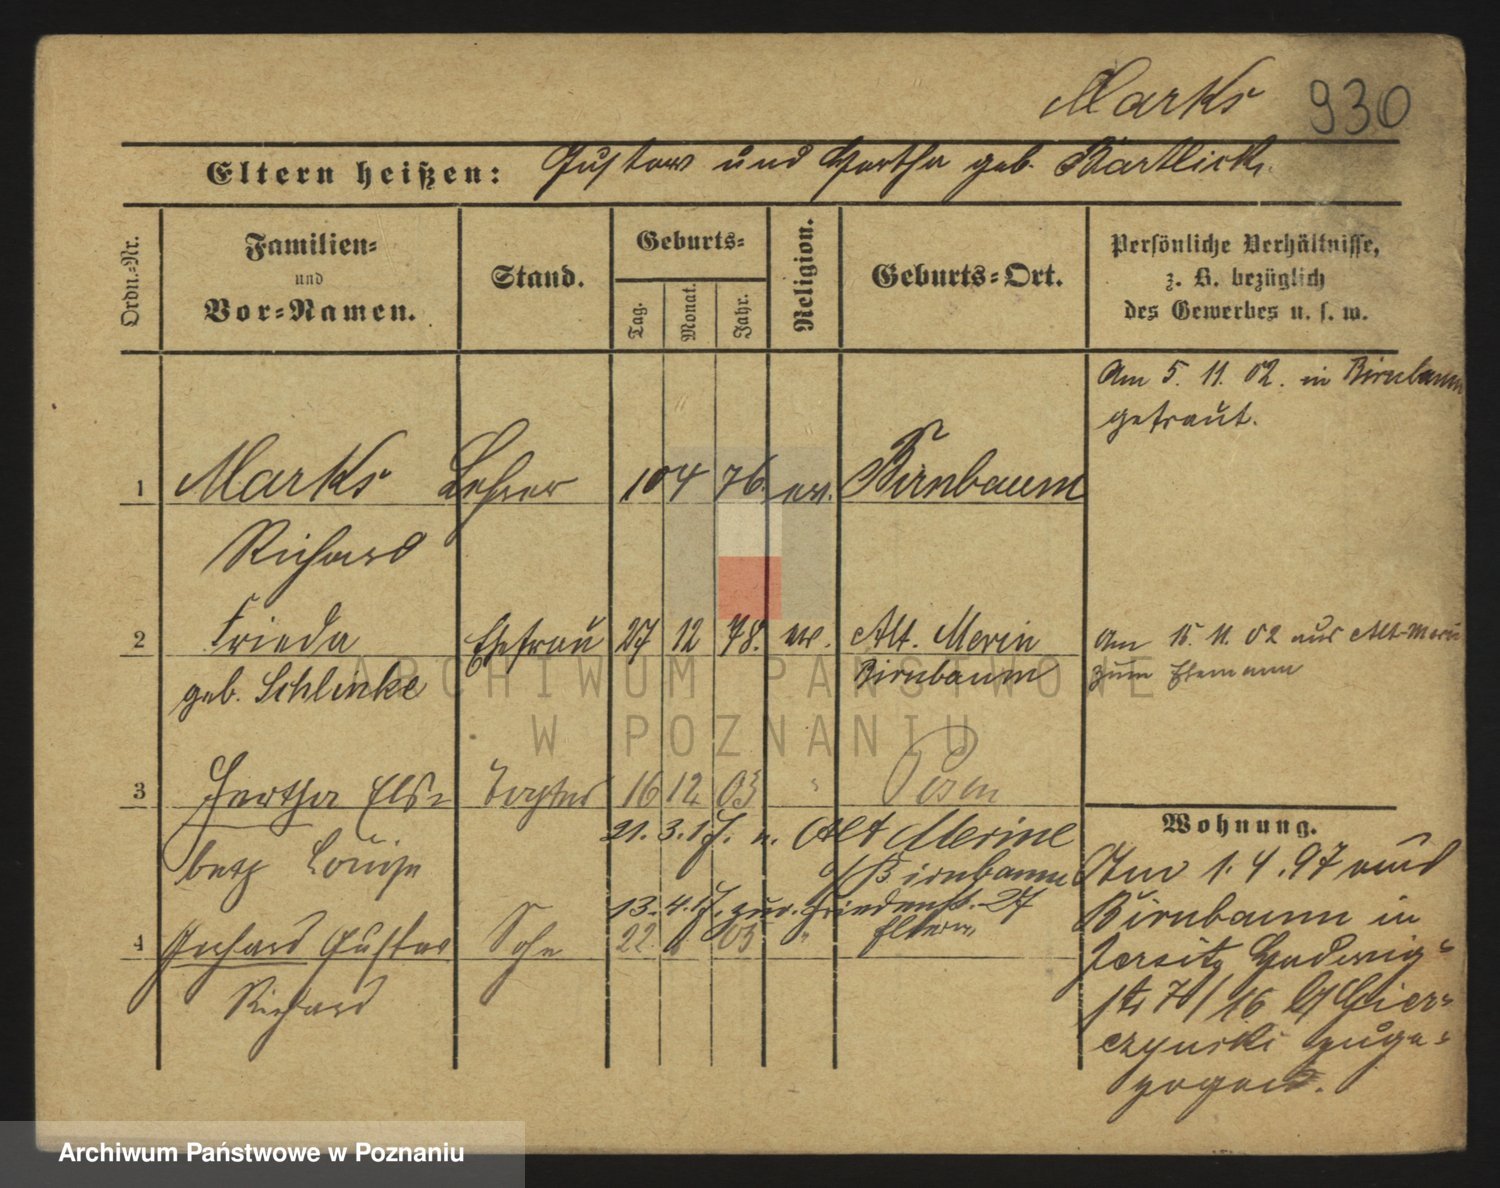 Marks 930
Eltern heißen: Gustav und Hertha geb. Bartlick.
Ordn.-Nr.
Familien-
und
Vor-Namen.
Stand.
Geburts-
Tag.
Monat.
Jahr.
Religion.
Geburts-Ort.
Persönliche Verhältnisse,
z. B. bezüglich
des Gewerbes u. s. w.
Am 5. 11. 02. in Birnbaum
getraut.
1 Marks Lehrer 10 4 76. ev. Birnbaum
Richard
2 Frieda Ehefrau 27 12 78. ev. Alt. Merin
geb. Schlinke Birnbaum
Am 15. 11. 02 aus Alt-Merin
zum Ehemann
3 Hertha Elsa- Tochter 16 12 03 " Posen
21. 3. 17. n. Alt Merine
beth Louise
Birnbaum
13. 4. 17. zur. Friedenstr. 27
Eltern
4 Gerhard Gustav Sohn 22. 03 "
Richard
Wohnung.
Am 1. 4. 97 aus
Birnbaum in
Jersitz Hedwig-
str 70/16 b/
czynski zuge-
zogen.
ARCHIWUM PAŃSTWOWE
W POZNANIU
Archiwum Państwowe w Poznaniu